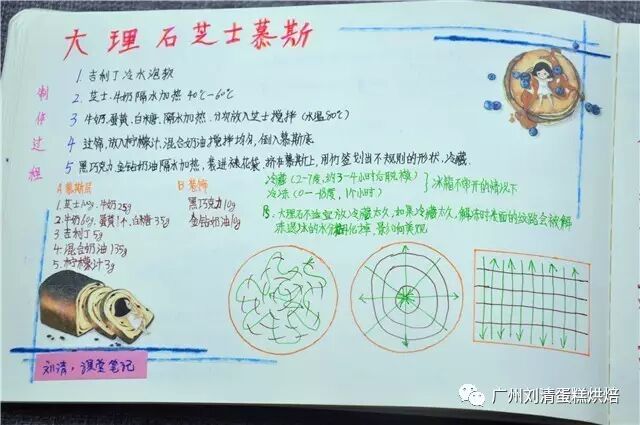 大理石芝士慕斯
制作过程
1. 吉利丁冷水泡软
2. 芝士.牛奶隔水加热 40℃-60℃
3 牛奶.蛋黄.白糖.隔水加热.分次放入芝士搅拌(水温80℃)
4 过筛.放入柠檬汁.混合奶油搅拌均匀.倒入慕斯底
5 黑巧克力.金钻奶油隔水加热,装进裱花袋.挤在慕斯上,用竹签划出不规则的形状,冷藏.
冷藏(2-7度,约3-4小时后脱模)
冷冻(0-−18度,1个小时)
冰箱不常开的情况下
A 慕斯层
1. 芝士125g.牛奶25g
2. 牛奶60g.蛋黄1个.白糖35g
3. 吉利丁5g
4. 混合奶油135g
5. 柠檬汁3g
B 装饰
黑巧克力10g
金钻奶油10g
大理石不适宜放冷藏太久,如果冷藏太久,解冻时表面的纹路会被解
冻退冰的水分融化掉,影响美观
刘清,课堂笔记
广州刘清蛋糕烘焙